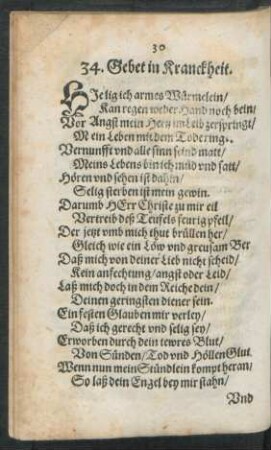 30
34. Gebet in Kranckheit.
HJe lig ich armes Würmelein/
Kan regen weder Hand noch bein/
Vor Angst mein Hertz im Leib zerspringt/
Mein Leben mit dem Tode ringt.
Vernunfft vnd alle sinn seind matt/
Meins Lebens bin ich müd vnd satt/
Hören vnd sehen ist dahin/
Selig sterben ist mein gewin.
Darumb HErr Christe zu mir eil
Vertreib deß Teufels feurig pfeil/
Der jetzt vmb mich thut brüllen her/
Gleich wie ein Löw vnd greusam Ber
Daß mich von deiner Lieb nicht scheid/
Kein anfechtung/ angst oder Leid/
Laß mich doch in dem Reiche dein/
Deinen geringsten diener sein.
Ein festen Glauben mir verley/
Daß ich gerecht vnd selig sey/
Erworben durch dein tewres Blut/
Von Sünden/ Tod vnd Höllen Glut.
Wenn nun mein Stündlein kompt heran/
So laß dein Engel bey mir stahn/
Vnd